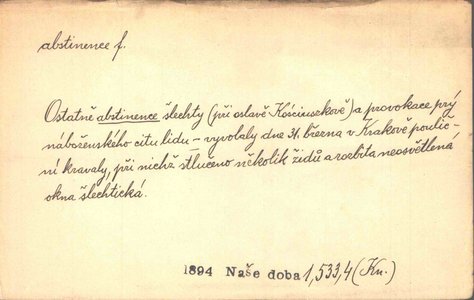 abstinence f.
Ostatně abstinence šlechty (při oslavě Kościuszkově) a provokace prý
náboženského citu lidu – vyvolaly dne 31. března v Krakově poulič-
ní kravaly, při nichž stlučeno několik židů a rozbita neosvětlená
okna šlechtická.
1894 Naše doba 1,533,4 (Kn.)